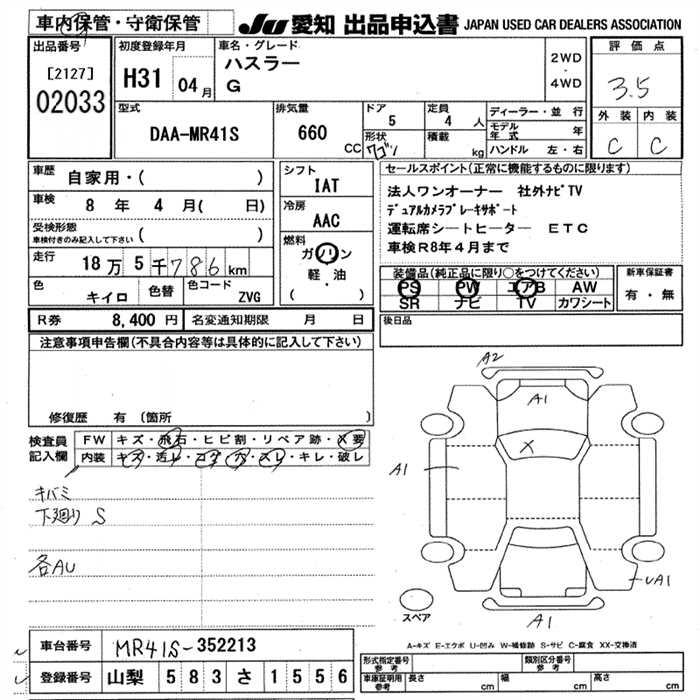 車内保管・守衛保管
JU 愛知 出品申込書 JAPAN USED CAR DEALERS ASSOCIATION
出品番号
[2127]
02033
初度登録年月
H31 04月
車名・グレード
ハスラー
G
2WD
・
4WD
評価点
3.5
外装 内装
C C
型式
DAA-MR41S
排気量
660 CC
ドア
5
定員
4 人
形状
ワゴン
積載
kg
ディーラー・並行
モデル年式 年
ハンドル 左・右
車歴 自家用・( )
車検 8 年 4 月( 日)
受検形態
車検付きのみ記入して下さい ( )
走行 18万5千786km
色 キイロ
色替
色コード ZVG
シフト
IAT
冷房
AAC
燃料
ガソリン
軽・油
( ・ )
セールスポイント(正常に機能するものに限ります)
法人ワンオーナー 社外ナビTV
デュアルカメラブレーキサポート
運転席シートヒーター ETC
車検R8年4月まで
装備品(純正品に限り○をつけてください)
PS PW エアB AW
SR ナビ TV カワシート
新車保証書
有・無
R券 8,400 円 名変通知期限 月 日
後日品
注意事項申告欄(不具合内容等は具体的に記入して下さい)
修復歴 有 (箇所 )
検査員記入欄
FW キズ・飛石・ヒビ割・リペア跡・X要
内装 キズ・汚レ・コゲ・穴・スレ・キレ・破レ
キバミ
下廻り S
各AU
A2
A1
X
A1
UA1
A1
スペア
A-キズ E-エクボ U-凹み W-補修跡 S-サビ C-腐食 XX-交換済
車台番号 MR41S-352213
登録番号 山梨 583 さ 1556
形式指定番号 参考
類別区分番号 参考
車庫証明用参考 長さ cm 幅 cm 高さ cm